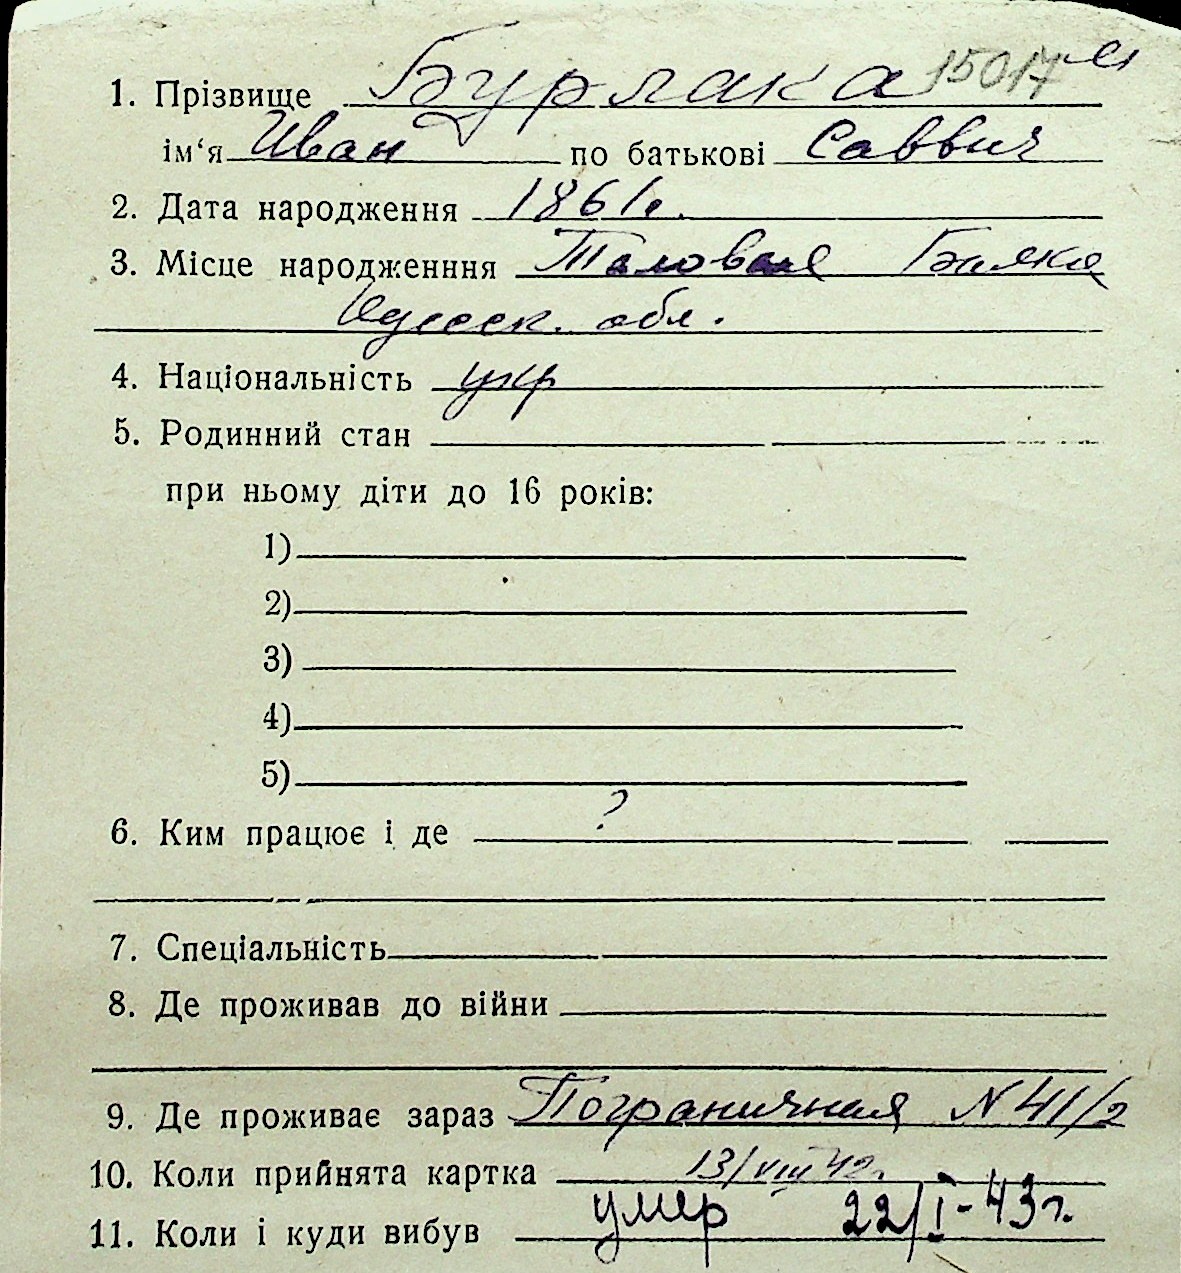 1. Прізвище Бурлака 15017
ім'я Иван по батькові Саввич
2. Дата народження 1861г.
3. Місце народженння Таловая Балка
Одесск. обл.
4. Національність укр
5. Родинний стан
при ньому діти до 16 років:
1)
2)
3)
4)
5)
6. Ким працює і де ?
7. Спеціальність
8. Де проживав до війни
9. Де проживає зараз Пограничная N 41/2
10. Коли прийнята картка 13/VIII 42г.
11. Коли і куди вибув умер 22/I-43г.